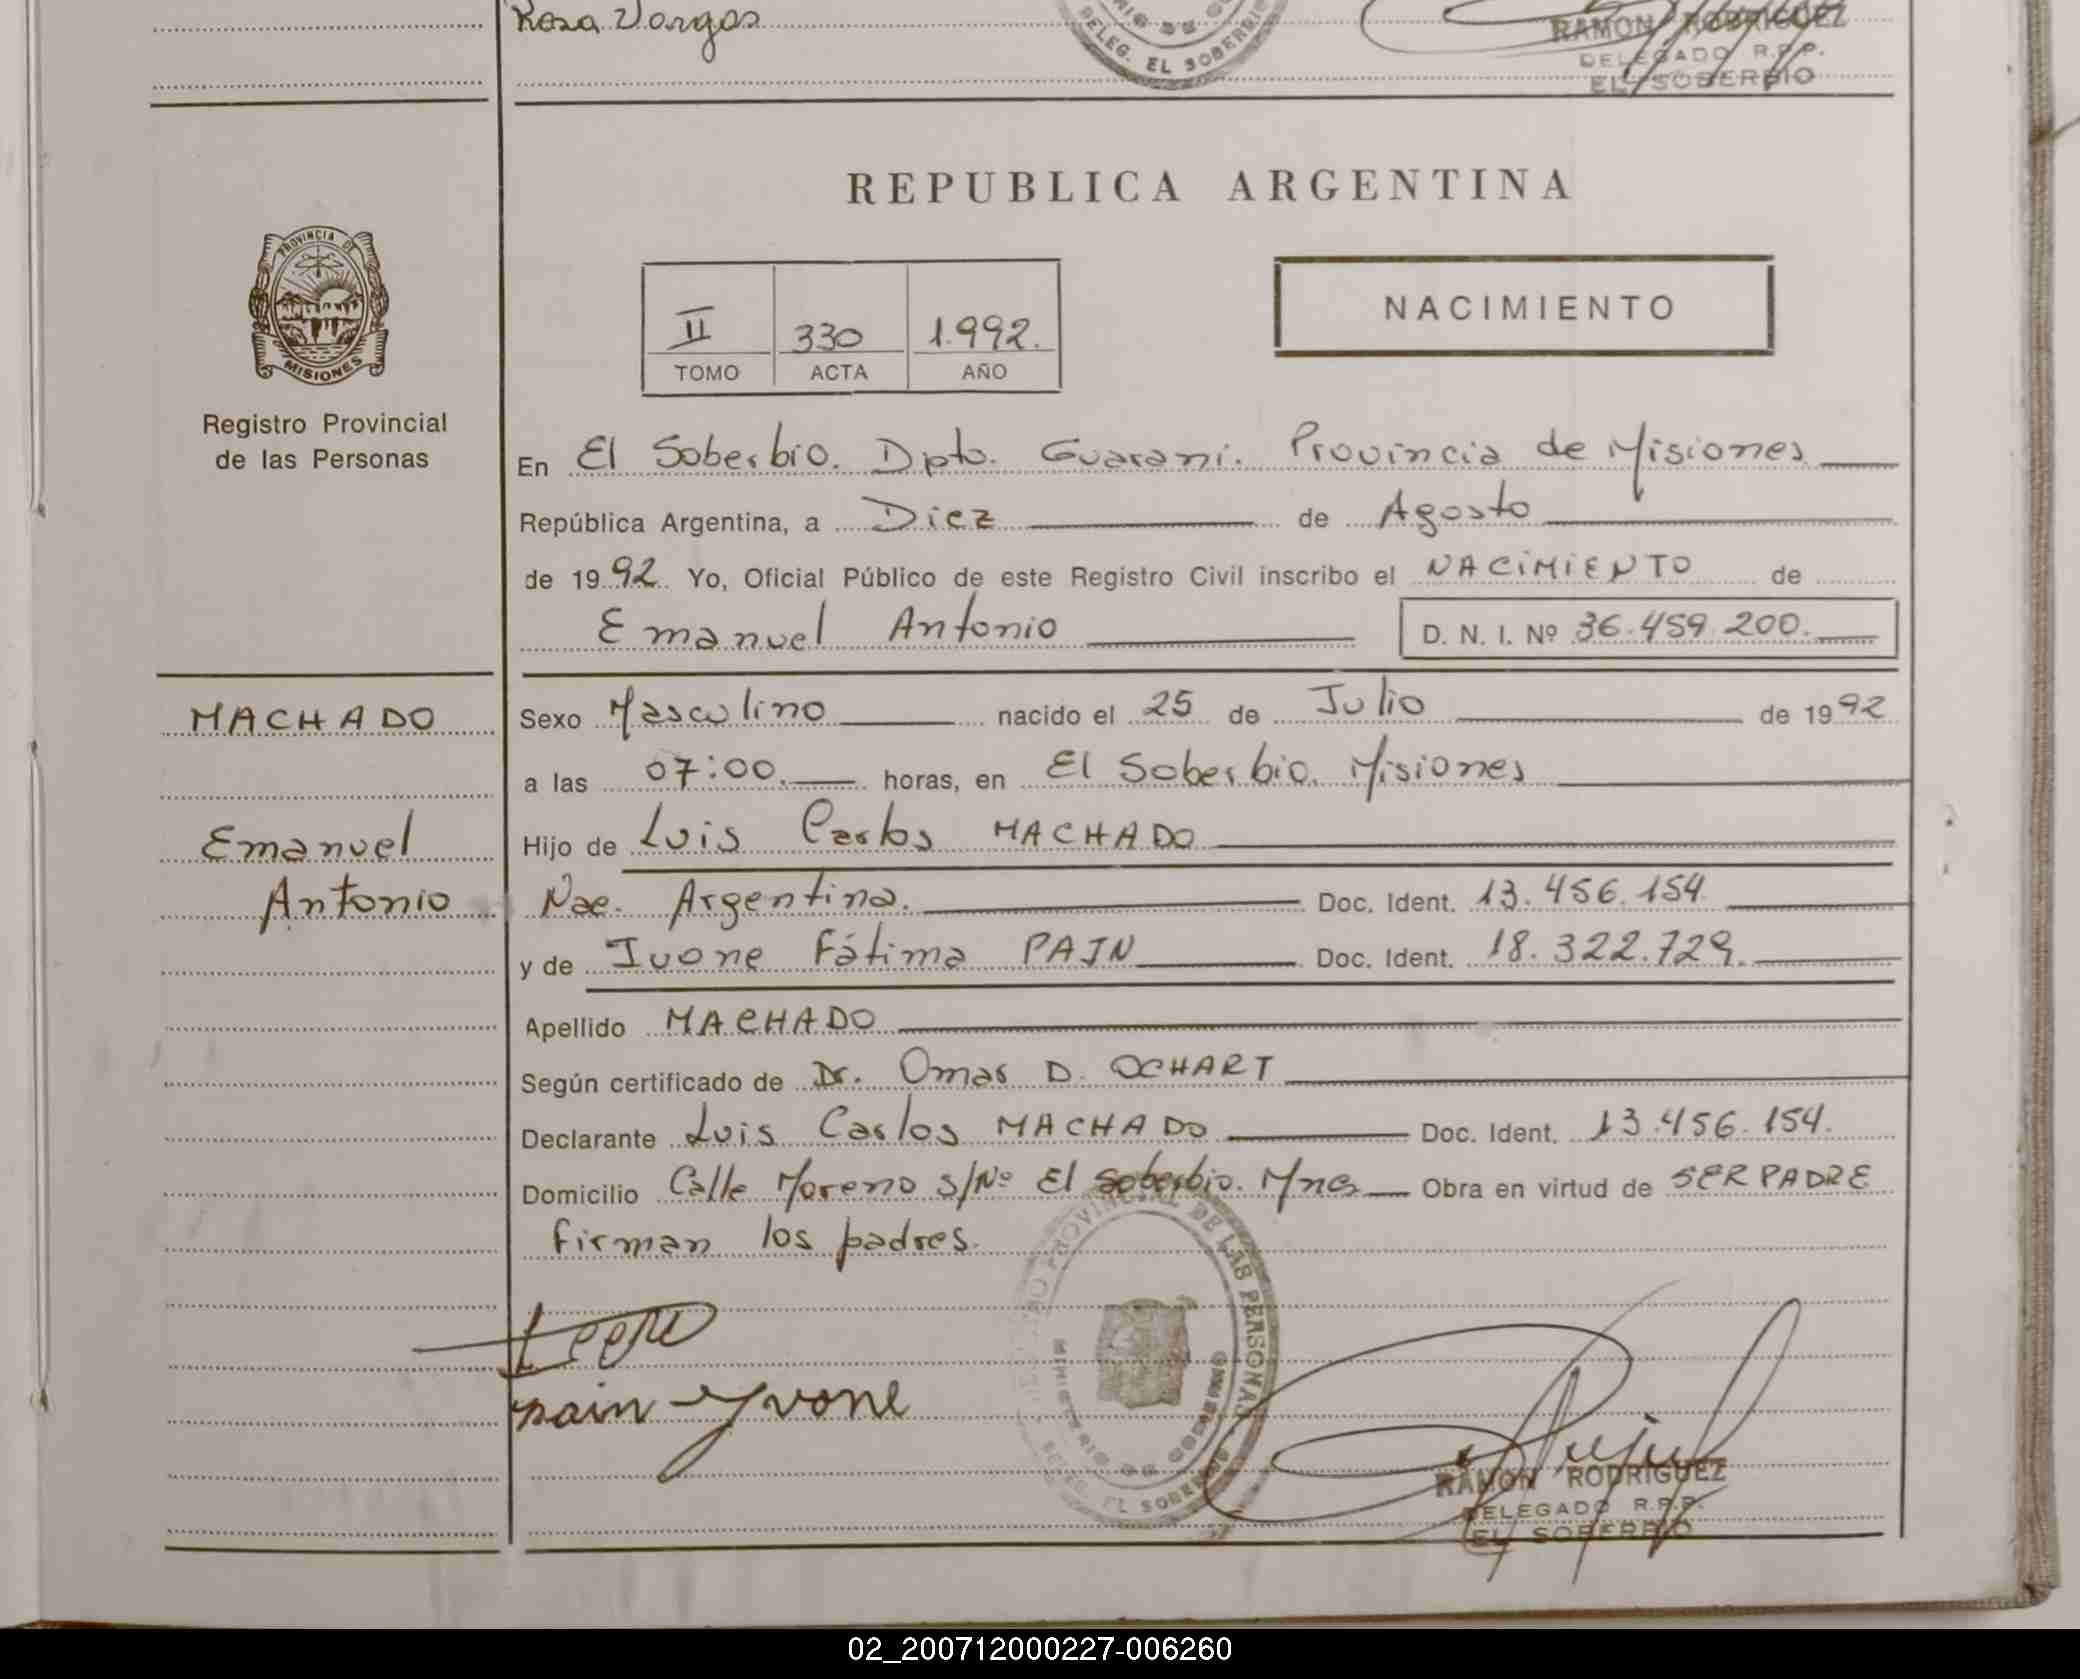 Rosa Vargas
DELEG. EL SOBERBIO
RAMON RODRIGUEZ
DELEGADO R.P.P.
EL SOBERBIO
REPUBLICA ARGENTINA
PROVINCIA DE
MISIONES
Registro Provincial
de las Personas
II 330 1.992.
TOMO ACTA AÑO
NACIMIENTO
En El Soberbio. Dpto. Guarani. Provincia de Misiones
República Argentina, a Diez de Agosto
de 1992 Yo, Oficial Público de este Registro Civil inscribo el NACIMIENTO de
Emanuel Antonio D. N. I. Nº 36.459.200.
MACHADO
Emanuel
Antonio
Sexo Masculino nacido el 25 de Julio de 1992
a las 07:00. horas, en El Soberbio. Misiones
Hijo de Luis Carlos MACHADO
Nac. Argentina. Doc. Ident. 13.456.154
y de Ivone Fátima PAIN Doc. Ident. 18.322.729.
Apellido MACHADO
Según certificado de Dr. Omar D. OCHART
Declarante Luis Carlos MACHADO Doc. Ident. 13.456.154.
Domicilio Calle Moreno s/Nº El Soberbio. Mnes Obra en virtud de SER PADRE
firman los padres.
PROVINCIAL DE LAS PERSONAS
MINISTERIO DE GOBIERNO
DELEG. EL SOBERBIO
pain Yvone
RAMON RODRIGUEZ
DELEGADO R.P.P.
EL SOBERBIO
02_200712000227-006260